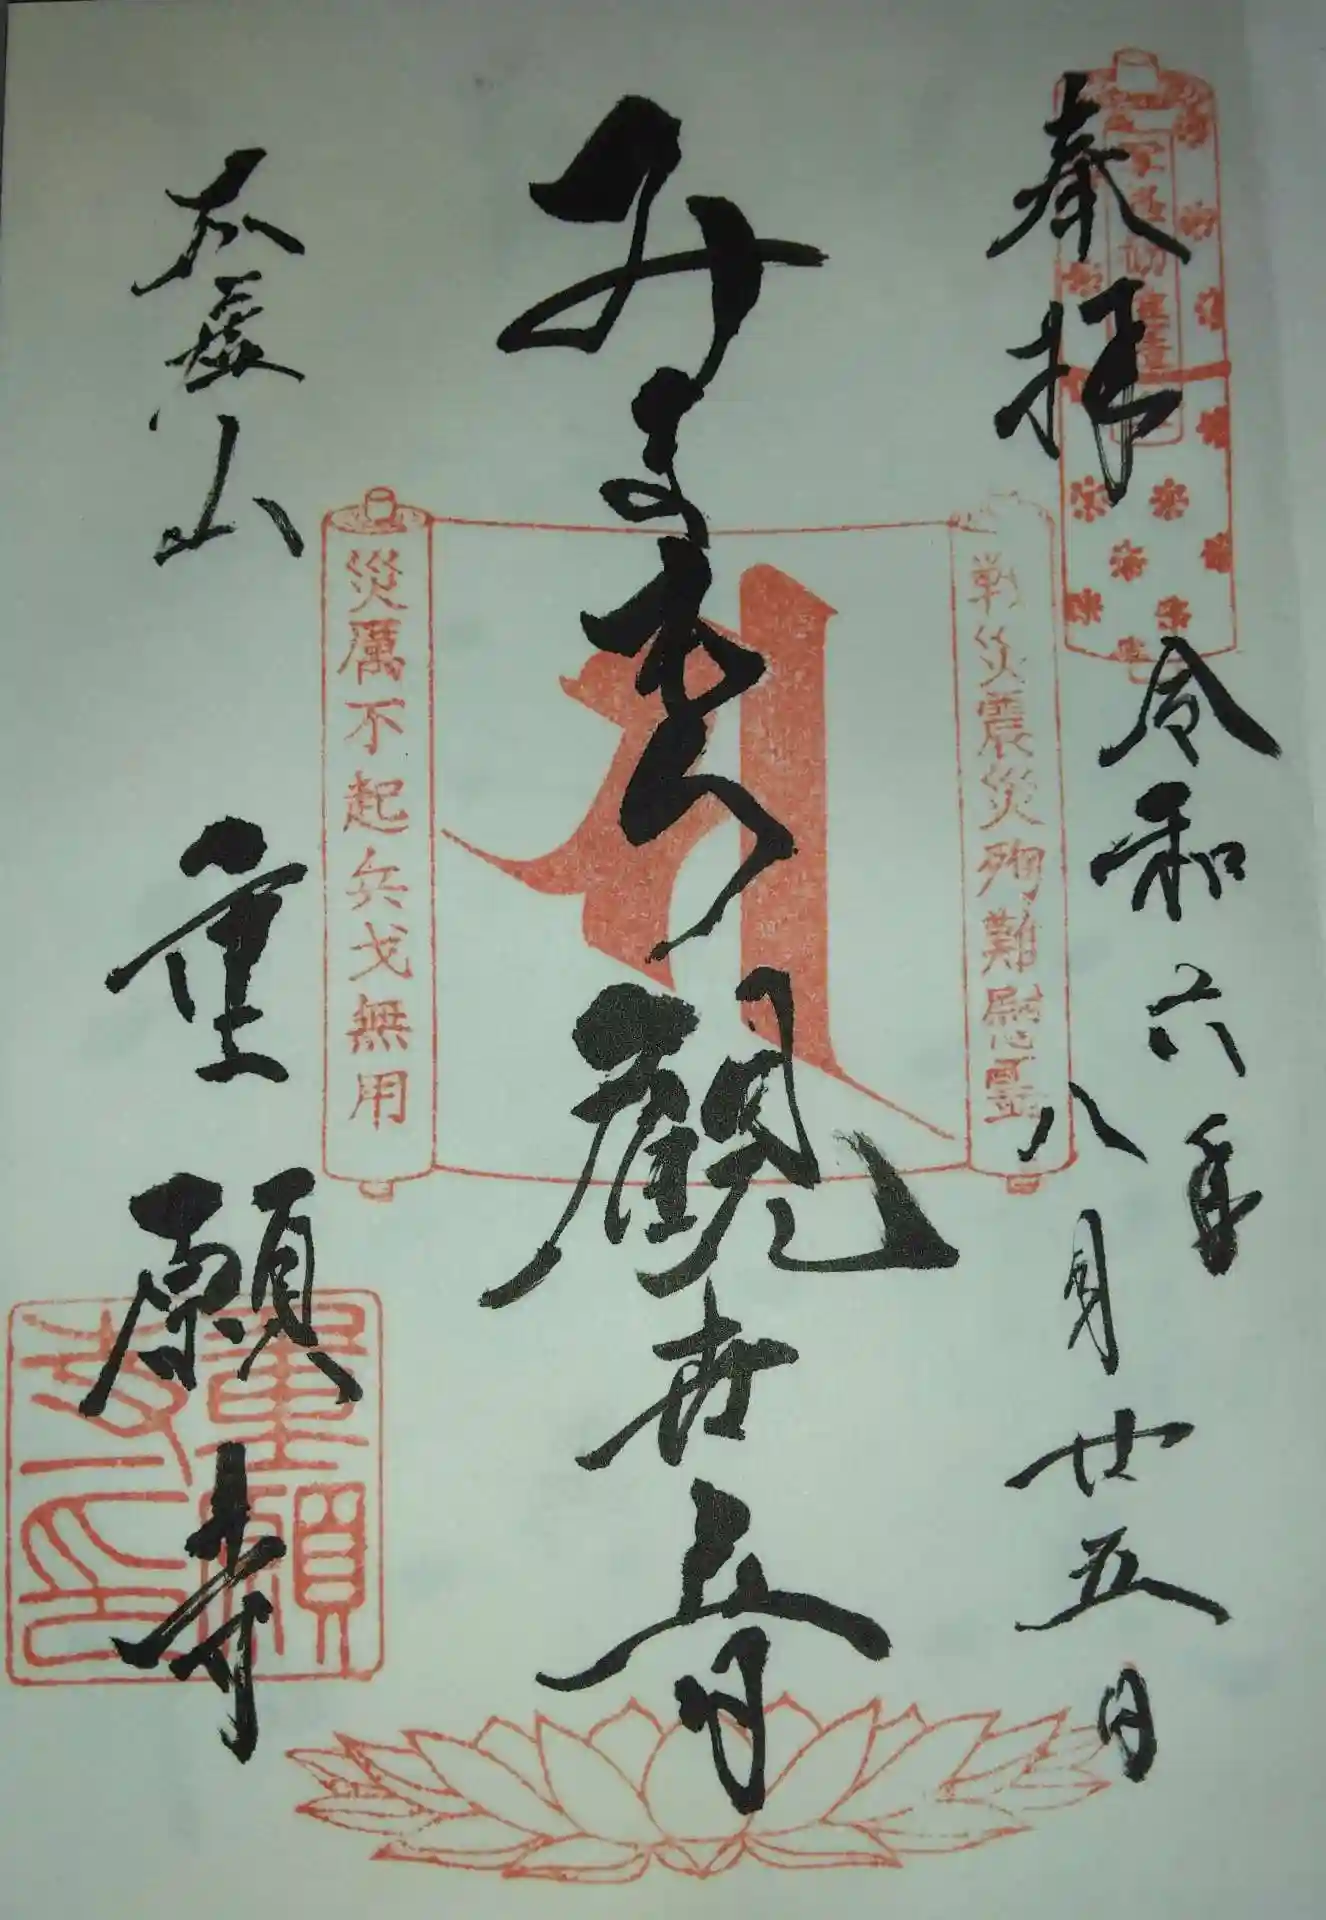 奉拝
令和六年
八月廿五日
戦災震災殉難慰霊
みまき観世音
災厲不起兵戈無用
山
重願寺
重願
寺印